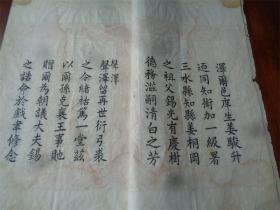 爾邑庠生姜駿升
迺同知銜加一級署
三水縣知縣姜桐岡
之祖父錫光有慶樹
德務滋嗣清白之芳
聲澤留再世衍弓裘
之令緒祜篤一堂茲
以爾孫克襄王事貤
贈爾為朝議大夫錫
之誥命於戲聿修念